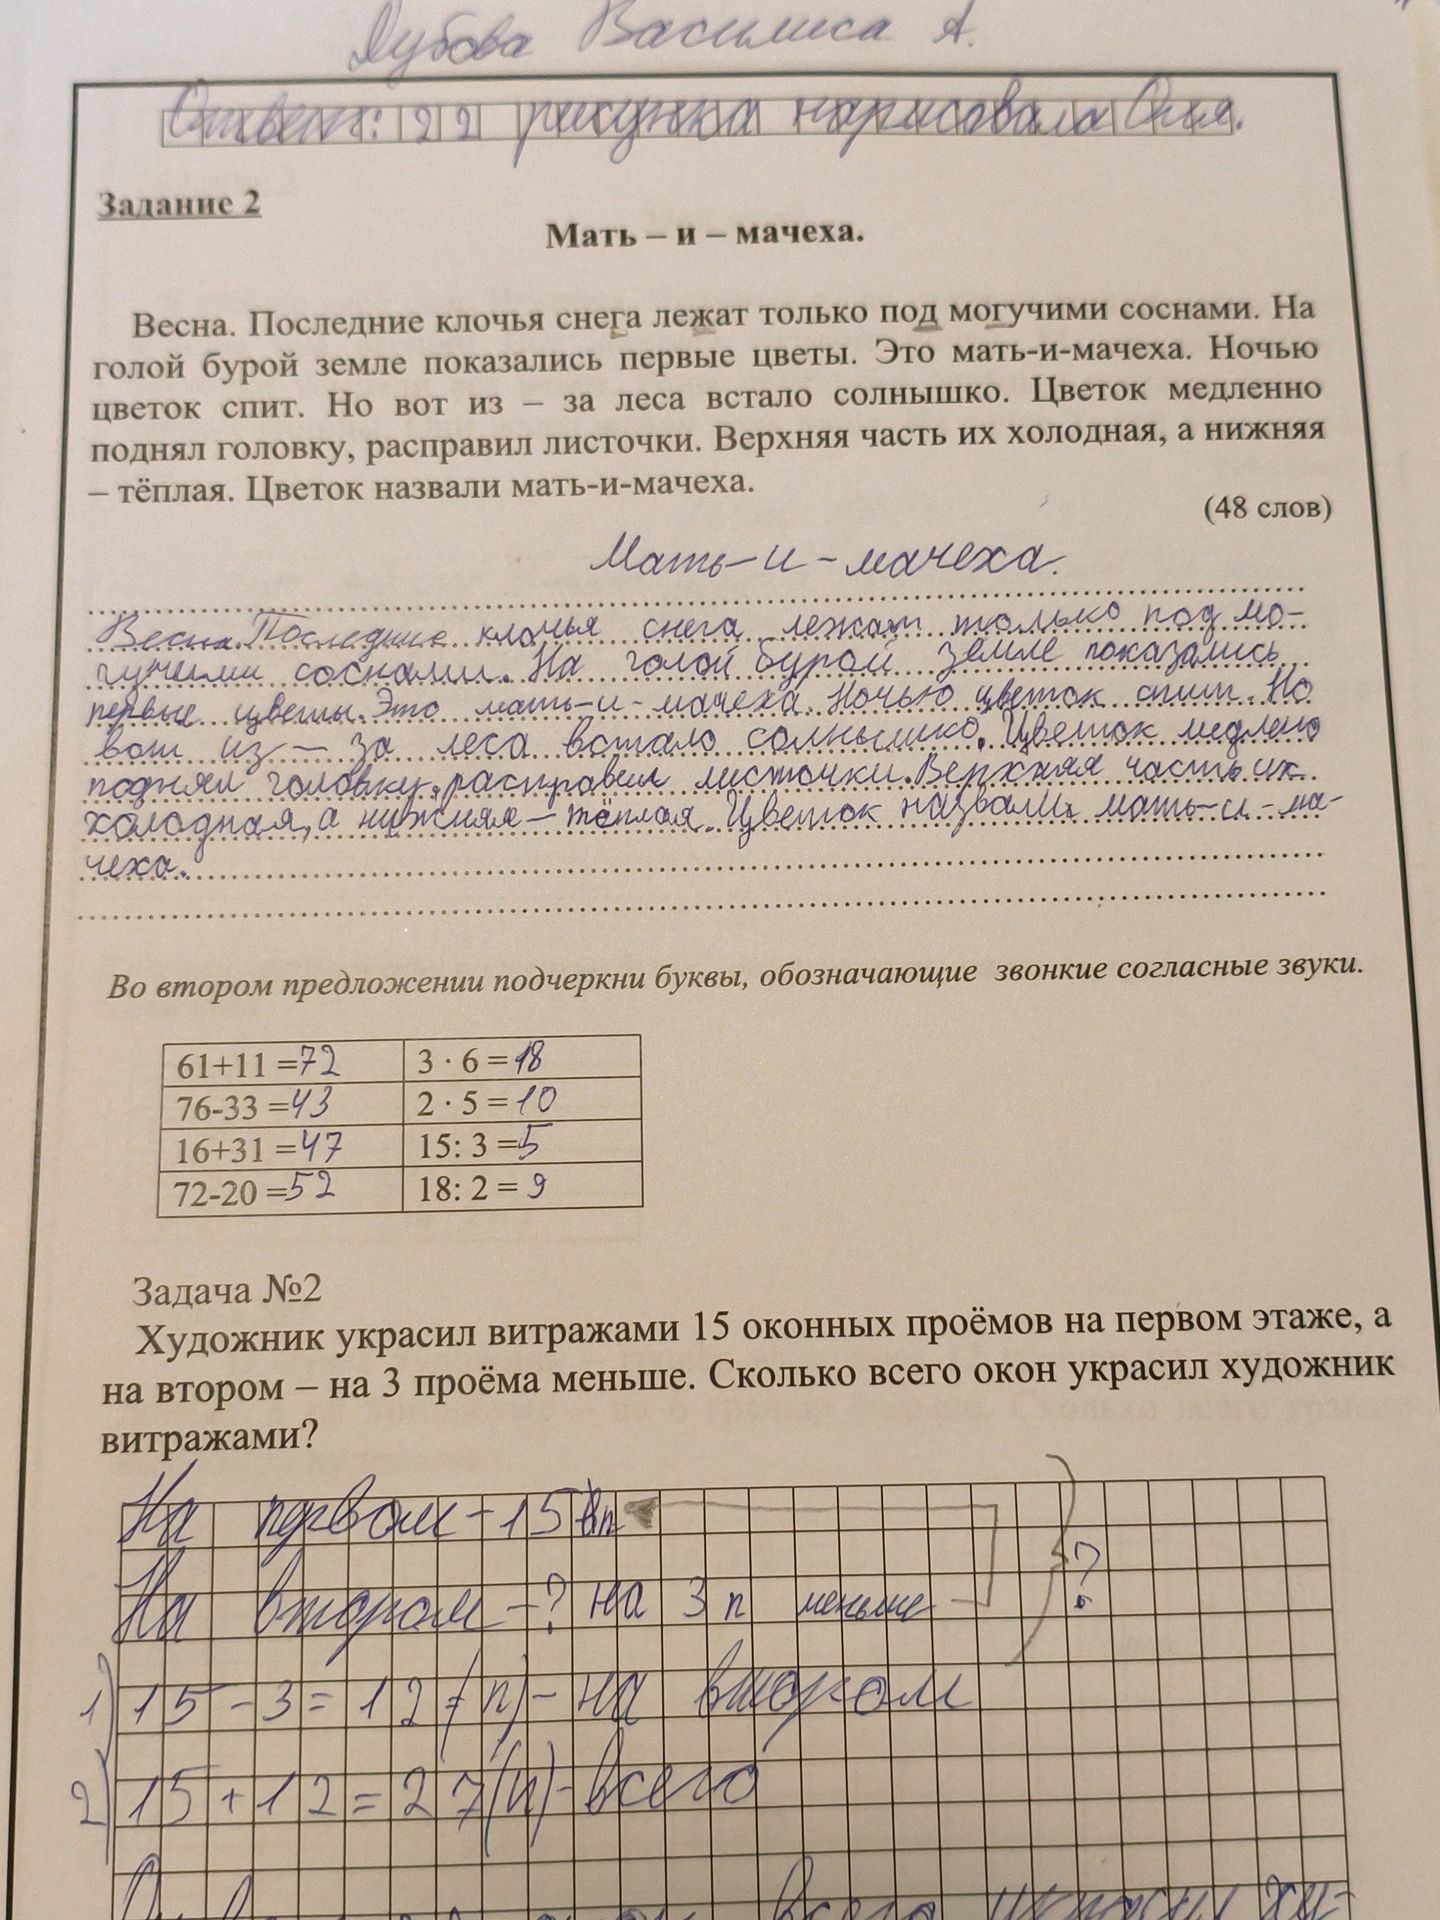 Дубова Василиса А.
Ответ: 22 рисунка нарисовала Оля.
Задание 2
Мать – и – мачеха.
Весна. Последние клочья снега лежат только под могучими соснами. На
голой бурой земле показались первые цветы. Это мать-и-мачеха. Ночью
цветок спит. Но вот из – за леса встало солнышко. Цветок медленно
поднял головку, расправил листочки. Верхняя часть их холодная, а нижняя
– тёплая. Цветок назвали мать-и-мачеха.
(48 слов)
Мать-и-мачеха.
Весна. Последние клочья снега лежат только под мо-
гучими соснами. На голой бурой земле показались
первые цветы. Это мать-и-мачеха. Ночью цветок спит. Но
вот из – за леса встало солнышко. Цветок медлено
поднял головку, расправил листочки. Верхняя часть их
холодная, а нижняя – тёплая. Цветок назвали мать-и-ма-
чеха.
Во втором предложении подчеркни буквы, обозначающие звонкие согласные звуки.
61+11 =72 3 · 6 = 18
76-33 =43 2 · 5 = 10
16+31 =47 15: 3 =5
72-20 =52 18: 2 = 9
Задача №2
Художник украсил витражами 15 оконных проёмов на первом этаже, а
на втором – на 3 проёма меньше. Сколько всего окон украсил художник
витражами?
На первом – 15 п
На втором – ? на 3 п меньше ?
1) 15 – 3 = 12 (п) – на втором
2) 15 + 12 = 27 (п) – всего
всего украсил ху-